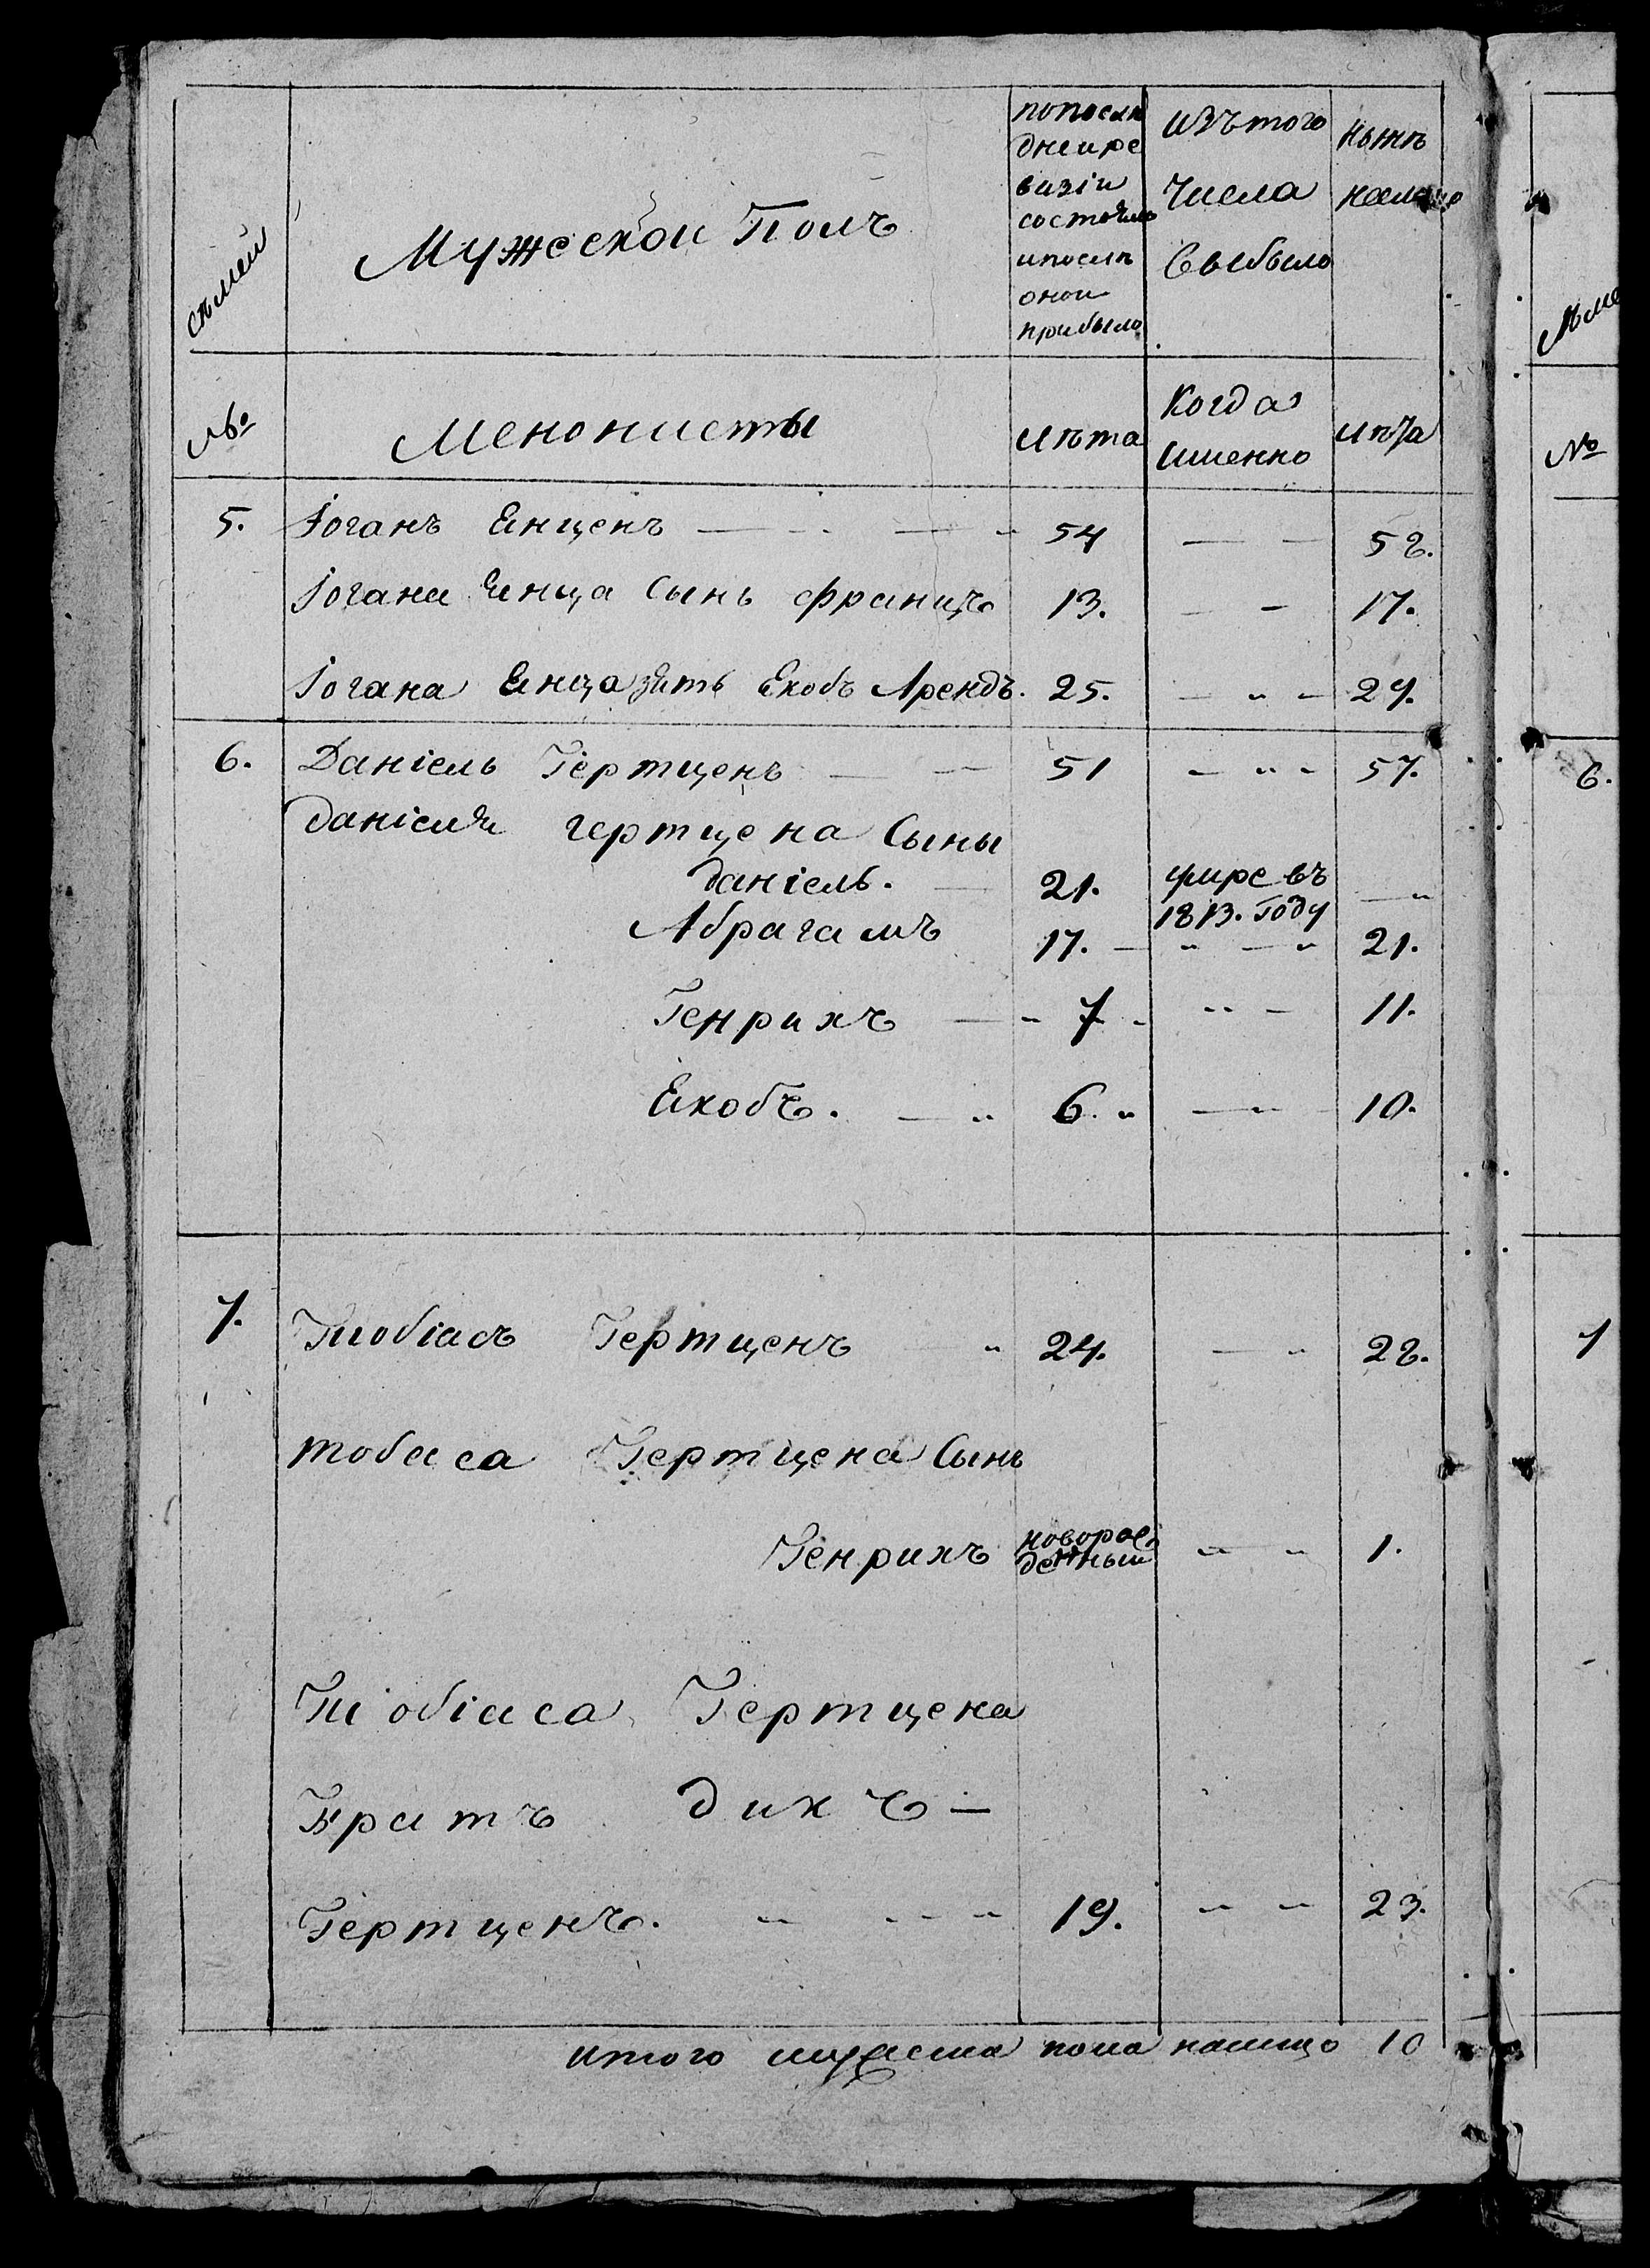 семей
Мужеской Полъ
попослѣ
днеире
визіи
состояло
ипослѣ
онои
прибыло
изътого
числа
выбыло
нынѣ
налицо
№
Менонисты
лѣта
Когда
именно
лѣта
5. Іоганъ Янценъ 54 58.
Іогана Янца Сынъ францъ 13. 17.
Іогана Янца зять Якобъ Арендъ. 25. 29.
6. Даніель Гертценъ 51 57.
даніеля гертцена Сыны
даніель. 21. умре въ
1813. году
Абрагамъ 17. 21.
Генрихъ 7 11.
Якобъ. 6. 10.
7. Тиобіасъ Гертценъ 24. 28.
тобиаса Гертцена Сынъ
Генрихъ новорож
денный 1.
Тиобіаса Гертцена
Братъ дикъ
Гертценъ. 19. 23.
итого мужеска пола налицо 10
№
6.
7